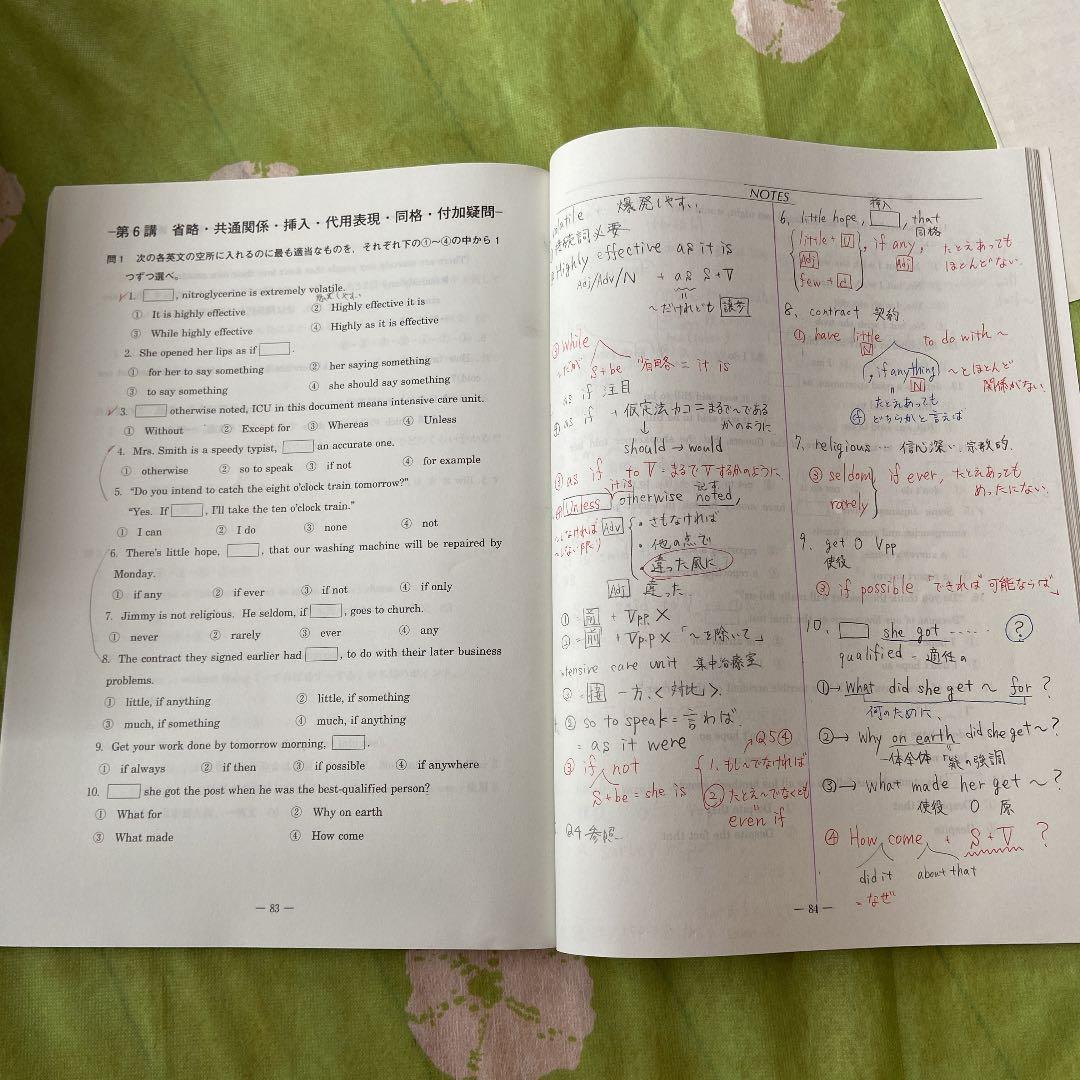 ─第6講　省略・共通関係・挿入・代用表現・同格・付加疑問─
問1　次の各英文の空所に入れるのに最も適当なものを，それぞれ下の①〜④の中から1
つずつ選べ。
✓1. □, nitroglycerine is extremely volatile.
爆発しやすい
① It is highly effective ② Highly effective it is
③ While highly effective ④ Highly as it is effective
2. She opened her lips as if □.
① for her to say something ② her saying something
③ to say something ④ she should say something
✓3. □ otherwise noted, ICU in this document means intensive care unit.
① Without ② Except for ③ Whereas ④ Unless
4. Mrs. Smith is a speedy typist, □ an accurate one.
① otherwise ② so to speak ③ if not ④ for example
5. “Do you intend to catch the eight o'clock train tomorrow?”
“Yes. If □, I'll take the ten o'clock train.”
① I can ② I do ③ none ④ not
6. There's little hope, □, that our washing machine will be repaired by
Monday.
① if any ② if ever ③ if not ④ if only
7. Jimmy is not religious. He seldom, if □, goes to church.
① never ② rarely ③ ever ④ any
8. The contract they signed earlier had □, to do with their later business
problems.
① little, if anything ② little, if something
③ much, if something ④ much, if anything
9. Get your work done by tomorrow morning, □.
① if always ② if then ③ if possible ④ if anywhere
10. □ she got the post when he was the best-qualified person?
① What for ② Why on earth
③ What made ④ How come
― 83 ―
NOTES
olatile 爆発しやすい．
接続詞必要
Highly effective as it is
Adj/Adv/N + as S+V
〜だけれども 譲歩
③ while
S+be 省略 = it is
as if 注目
as if + 仮定法カコ = まるで〜である
かのように
should → would
③ as if to V = まるでVするかのように
it is 記す
Unless otherwise noted,
しなければ Adv ・さもなければ
しない限り) ・他の点で
・違った風に
Adj 違った
① = 前 + Vpp ×
② = 前 + Vpp × 「〜を除いて」
ntensive care unit 集中治療室
③ = 接 一方．＜対比＞．
② so to speak = 言わば．
= as it were
③ if not
S+be = she is
↗Q5④
1. もし〜でなければ
② たとえ〜でなくとも
even if
Q4 参照
挿入
6. little hope, □, that
同格
little + U
Adj
few + C
, if any,
Adj
たとえあっても
ほとんどない．
8. contract 契約
① have little to do with 〜
N
, if anything
N
〜とほとんど
関係がない．
たとえあっても
④ どちらかと言えば
7. religious … 信心深い，宗教的．
③ seldom
rarely
if ever, たとえあっても
めったにない．
9. get O Vpp
使役
③ if possible 「できれば 可能ならば」
10. □ she got ‥‥‥ ?
qualified = 適任の
① → What did she get 〜 for ?
何のために．
② → why on earth did she get 〜?
一体全体 = 疑の強調
③ → what made her get 〜 ?
使役 O 原
④ How come + S + V ?
did it about that
= なぜ
― 84 ―